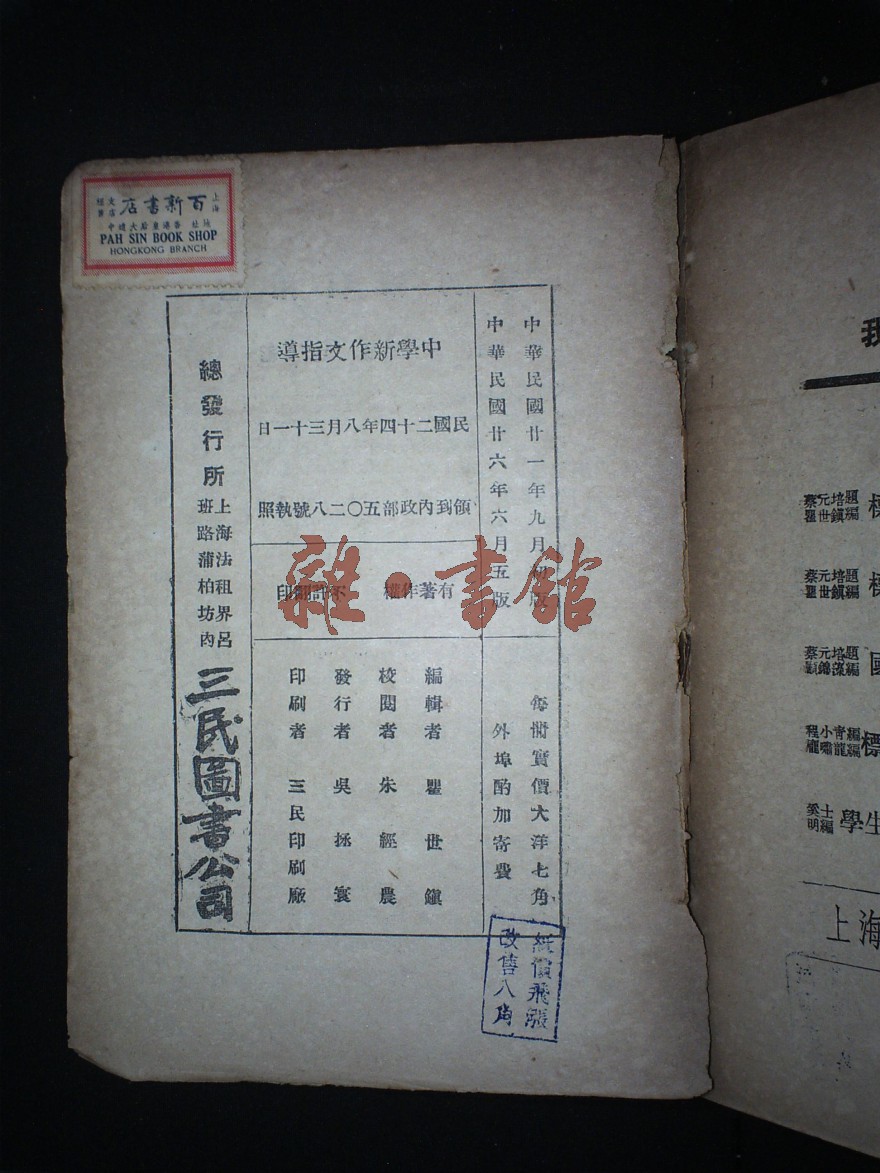 上海
百新書店
文店
地址 香港皇后大道中
PAH SIN BOOK SHOP
HONGKONG BRANCH
中華民國廿一年九月初版
中華民國廿六年六月五版
每冊實價大洋七角
外埠酌加寄費
中學新作文指導
民國二十四年八月三十一日
領到內政部五〇二八號執照
有著作權 不許翻印
編輯者 瞿世鎮
校閱者 朱經農
發行者 吳拯寰
印刷者 三民印刷廠
總發行所
上海法租界呂
班路蒲柏坊內
三民圖書公司
紙價飛漲
改售八角
雜·書館
蔡元培題
瞿世鎮編
標
蔡元培題
瞿世鎮編
標
蔡元培題
國
程小青編
龐嘯龍編
標
學生
上海